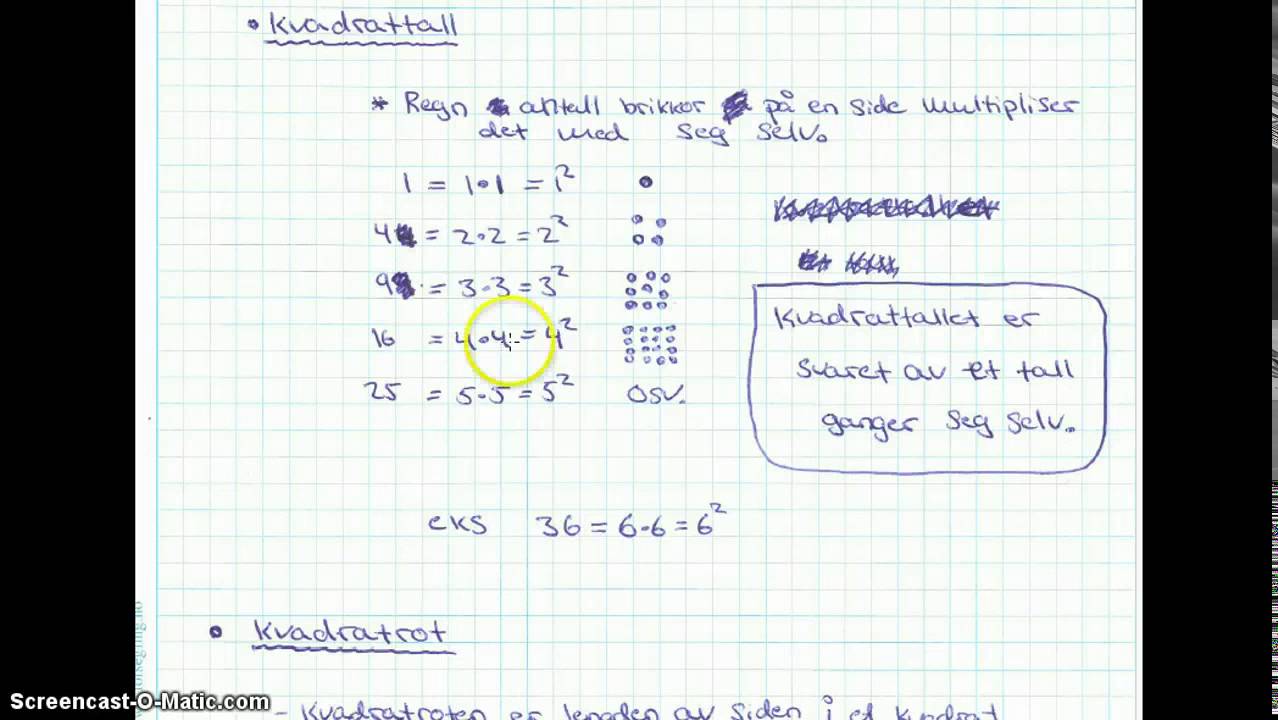 • Kvadrattall
* Regn antall brikkor på en side multipliser
det med seg selv.
1 = 1·1 = 1²
4 = 2·2 = 2²
9 = 3·3 = 3²
16 = 4·4 = 4²
25 = 5·5 = 5² osv.
Kvadrattallet er
svaret av et tall
ganger seg selv.
eks 36 = 6·6 = 6²
• Kvadratrot
- Kvadratroten er lengden av siden i et kvadrat
Screencast-O-Matic.com